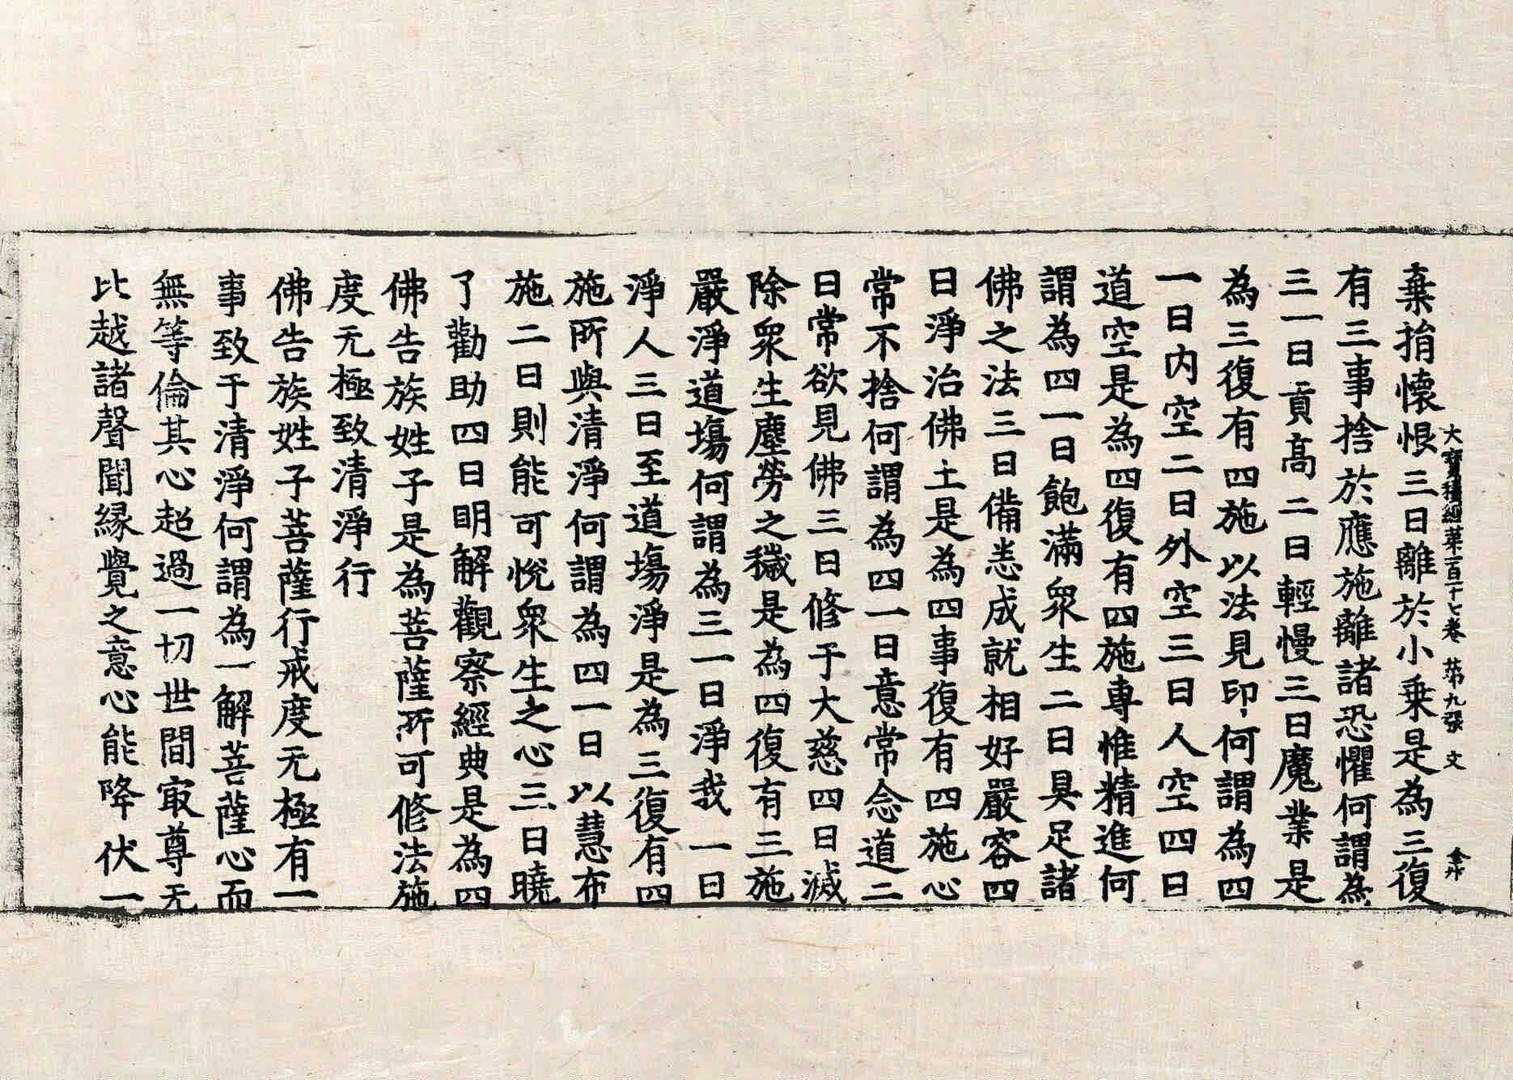 棄捐懷恨三曰離於小乘是為三復
大寶積經第一百一十七卷　苐九張　文
有三事捨於應施離諸恐懼何謂為
三一曰貢高二曰輕慢三曰魔業是
為三復有四施以法見印何謂為四
一曰內空二曰外空三曰人空四曰
道空是為四復有四施專惟精進何
謂為四一曰飽滿衆生二曰具足諸
佛之法三曰備悉成就相好嚴容四
曰淨治佛土是為四事復有四施心
常不捨何謂為四一曰意常念道二
曰常欲見佛三曰修于大慈四曰滅
除衆生塵勞之穢是為四復有三施
嚴淨道塲何謂為三一曰淨我一曰
淨人三曰至道塲淨是為三復有四
施所與清淨何謂為四一曰以慧布
施二曰則能可悅衆生之心三曰曉
了勸助四曰明解觀察經典是為四
佛告族姓子是為菩薩所可修法施
度无極致清淨行
佛告族姓子菩薩行戒度无極有一
事致于清淨何謂為一解菩薩心而
無等倫其心超過一切世間㝡尊无
比越諸聲聞縁覺之意心能降伏一